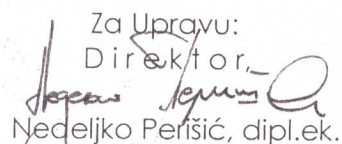 Za Upravu:
Direktor,
Nedeljko Perišić, dipl.ek.